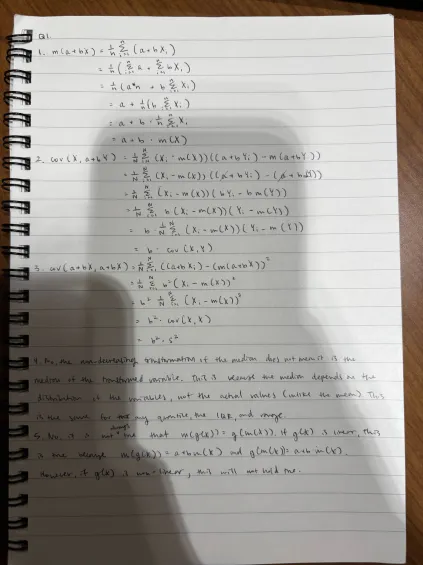 Q1.
1. m(a+bX) = 1/n Σ_{i=1}^{n} (a+bX_i)
= 1/n (Σ_{i=1}^{n} a + Σ_{i=1}^{n} bX_i)
= 1/n (a*n + b Σ_{i=1}^{n} X_i)
= a + 1/n (b Σ_{i=1}^{n} X_i)
= a + b · 1/n Σ_{i=1}^{n} X_i
= a + b · m(X)
2. cov(X, a+bY) = 1/N Σ_{i=1}^{N} (X_i - m(X))((a+bY_i) - m(a+bY))
= 1/N Σ_{i=1}^{N} (X_i - m(X))((a+bY_i) - (a+bm(Y)))
= 1/N Σ_{i=1}^{N} (X_i - m(X))(bY_i - bm(Y))
= 1/N Σ_{i=1}^{N} b(X_i - m(X))(Y_i - m(Y))
= b 1/N Σ_{i=1}^{N} (X_i - m(X))(Y_i - m(Y))
= b · cov(X,Y)
3. cov(a+bX, a+bX) = 1/N Σ_{i=1}^{N} ((a+bX_i) - (m(a+bX))²
= 1/N Σ_{i=1}^{N} b²(X_i - m(X))²
= b² 1/N Σ_{i=1}^{N} (X_i - m(X))²
= b² · cov(X,X)
= b² · s²
4. the non-decreasing transformation of the median does not mean it is the
median of the transformed variable. This is because the median depends on the
distribution of the variables, not the actual values (unlike the mean). This
is the same for any quantile, the IQR, and range.
5. No, it is not always true that m(g(X)) = g(m(X)). If g(X) is linear, this
is true because m(g(X)) = a+b m(X) and g(m(X)) = a+b m(X).
However, if g(X) is non-linear, this will not hold true.